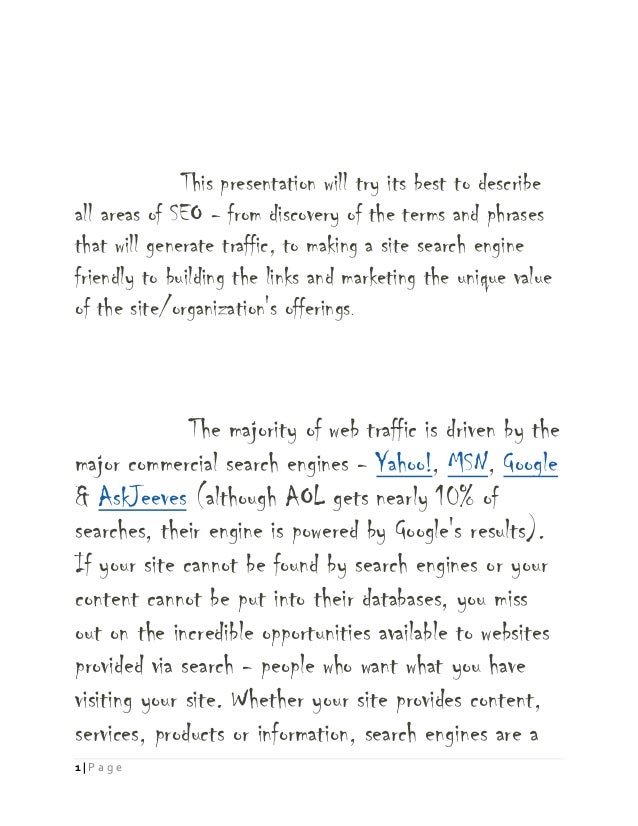 This presentation will try its best to describe
all areas of SEO - from discovery of the terms and phrases
that will generate traffic, to making a site search engine
friendly to building the links and marketing the unique value
of the site/organization's offerings.
The majority of web traffic is driven by the
major commercial search engines - Yahoo!, MSN, Google
& AskJeeves (although AOL gets nearly 10% of
searches, their engine is powered by Google's results).
If your site cannot be found by search engines or your
content cannot be put into their databases, you miss
out on the incredible opportunities available to websites
provided via search - people who want what you have
visiting your site. Whether your site provides content,
services, products or information, search engines are a
1|Page